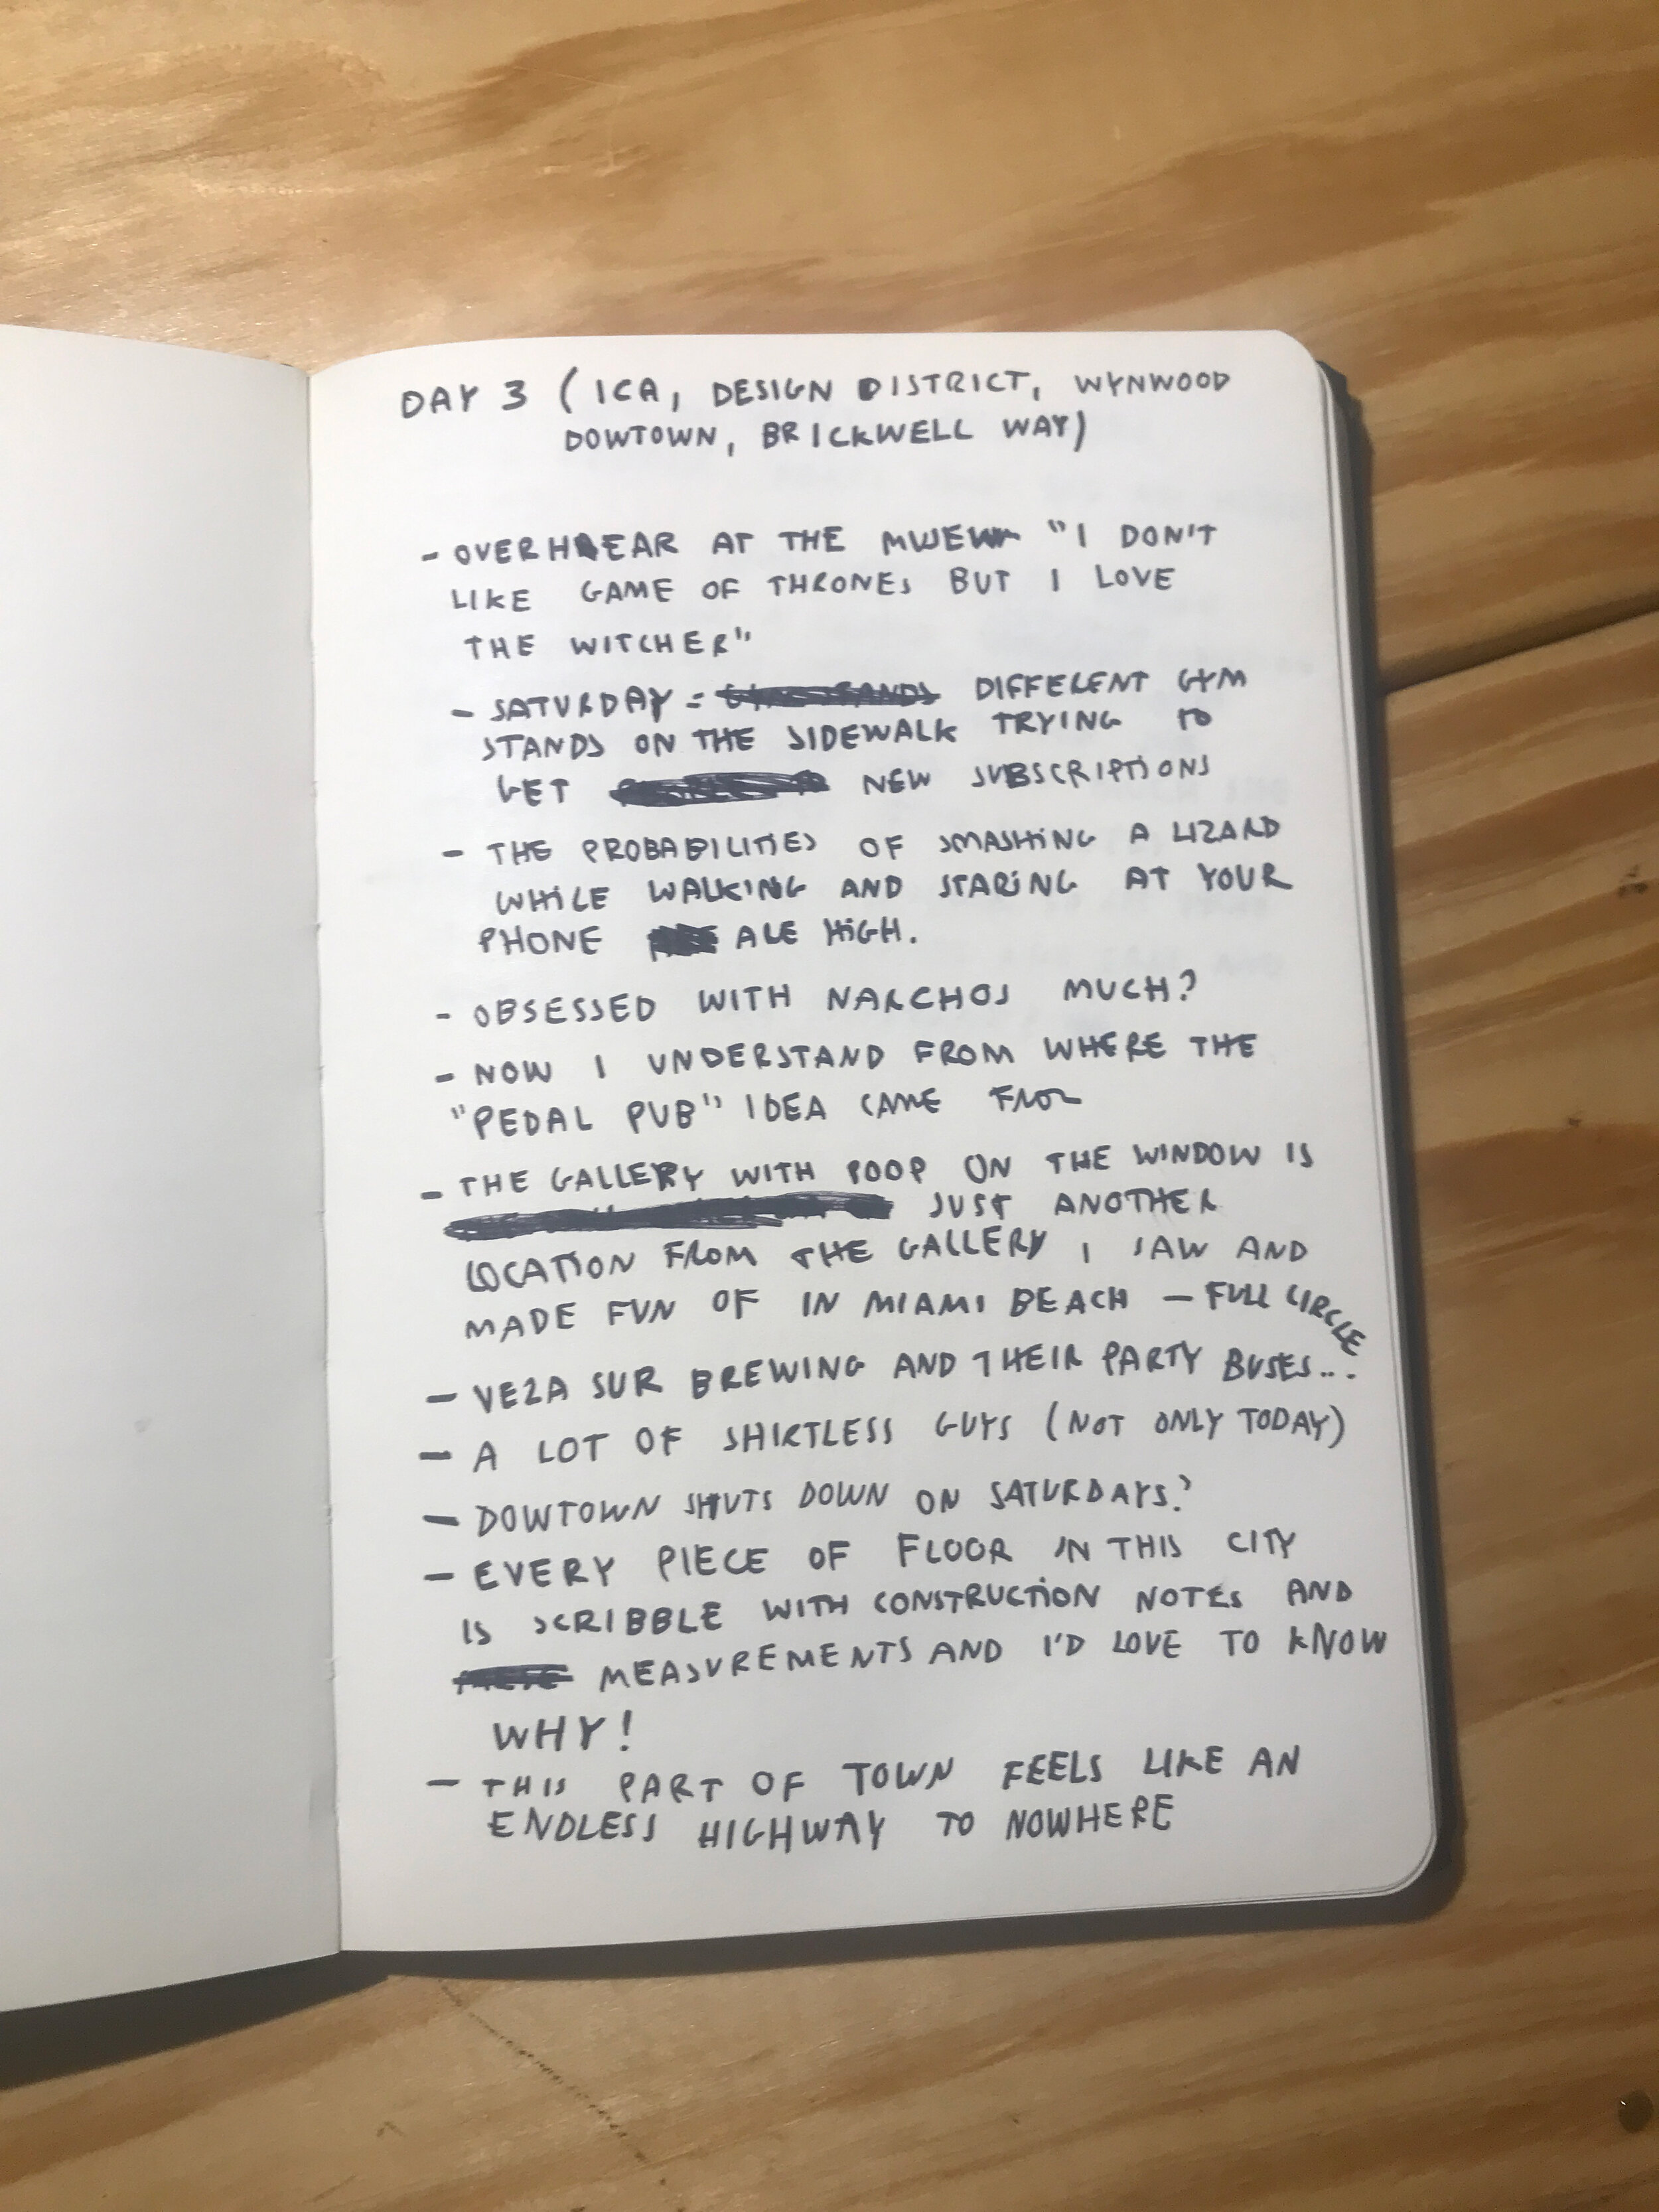 DAY 3 (ICA, DESIGN DISTRICT, WYNWOOD
DOWTOWN, BRICKWELL WAY)
- OVERHEAR AT THE "I DON'T
LIKE GAME OF THRONES BUT I LOVE
THE WITCHER"
- SATURDAY = DIFFERENT GYM
STANDS ON THE SIDEWALK TRYING TO
GET NEW SUBSCRIPTIONS
- THE PROBABILITIES OF SMASHING A LIZARD
WHILE WALKING AND STARING AT YOUR
PHONE ARE HIGH.
- OBSESSED WITH NARCHOS MUCH?
- NOW I UNDERSTAND FROM WHERE THE
"PEDAL PUB" IDEA CAME FROM
- THE GALLERY WITH POOP ON THE WINDOW IS
JUST ANOTHER
LOCATION FROM THE GALLERY I SAW AND
MADE FUN OF IN MIAMI BEACH - FULL CIRCLE
- VEZA SUR BREWING AND THEIR PARTY BUSES...
- A LOT OF SHIRTLESS GUYS (NOT ONLY TODAY)
- DOWTOWN SHUTS DOWN ON SATURDAYS?
- EVERY PIECE OF FLOOR IN THIS CITY
IS SCRIBBLE WITH CONSTRUCTION NOTES AND
MEASUREMENTS AND I'D LOVE TO KNOW
WHY!
- THIS PART OF TOWN FEELS LIKE AN
ENDLESS HIGHWAY TO NOWHERE